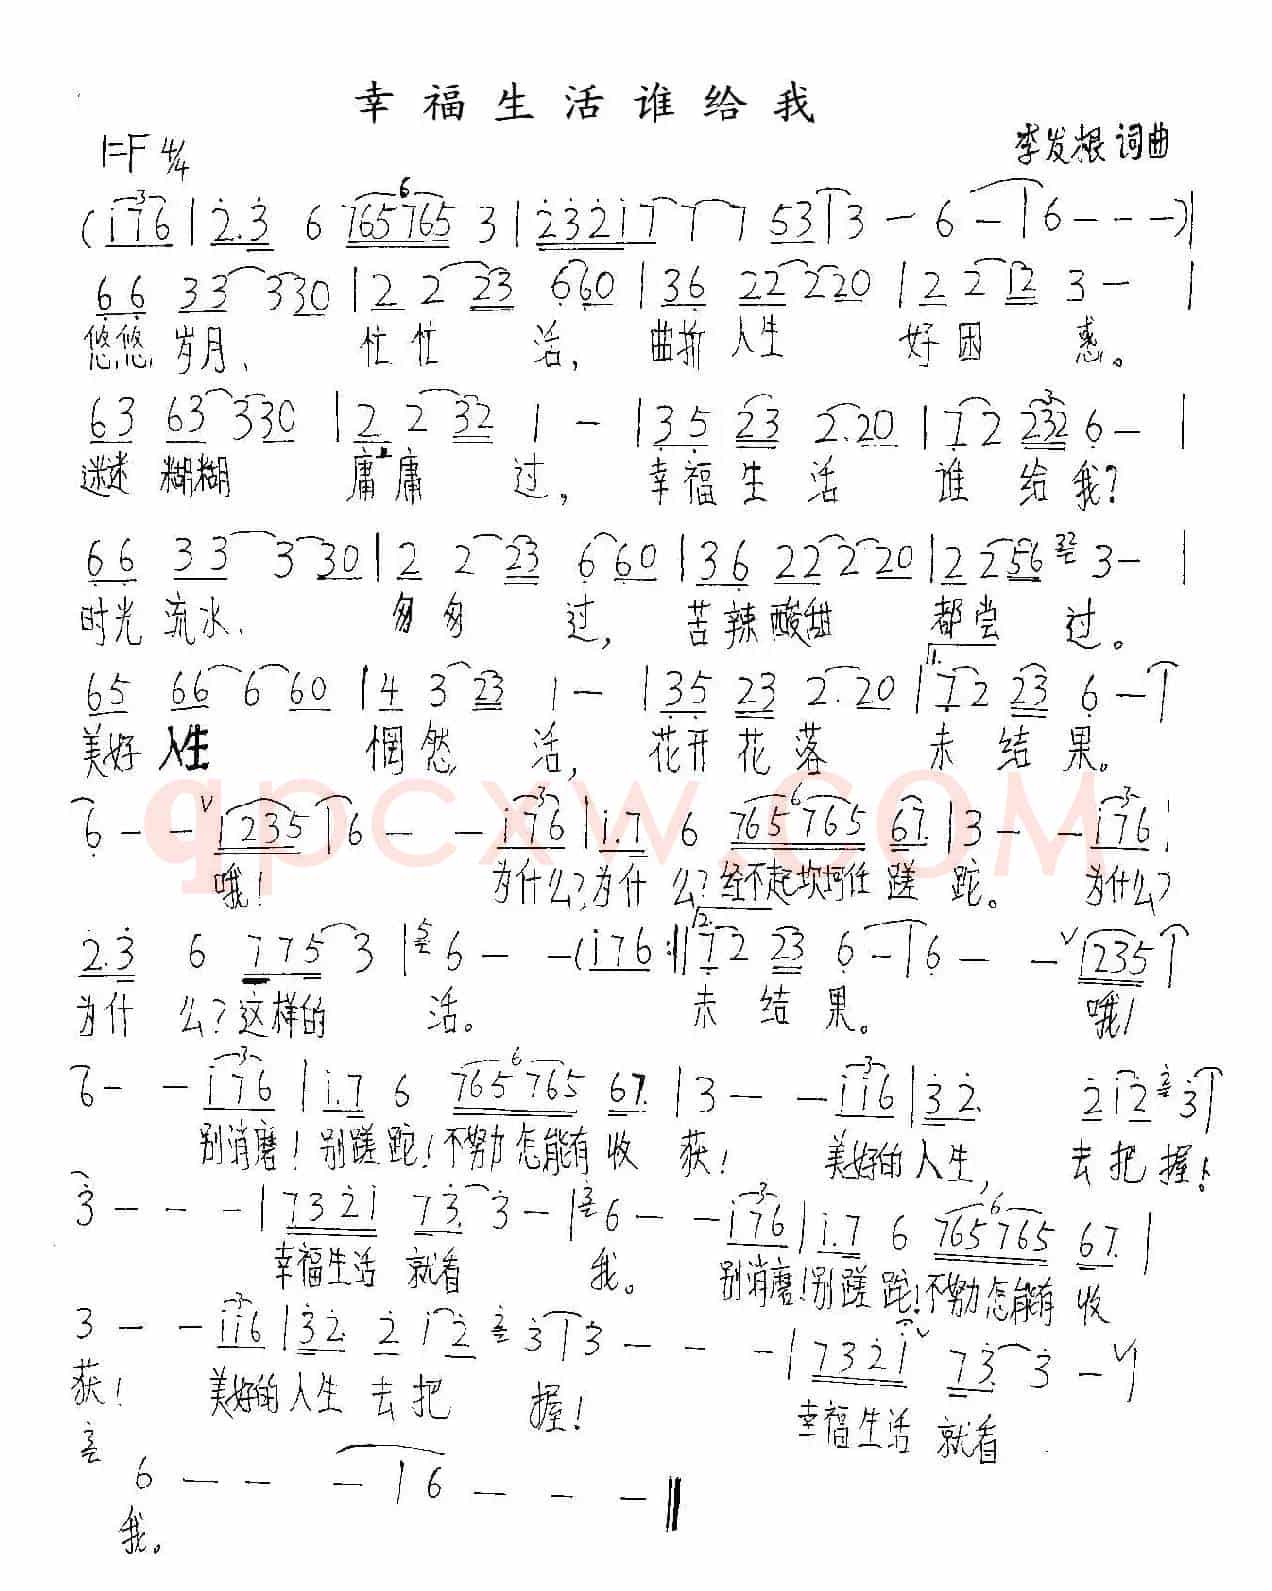 幸福生活谁给我
1=F 4/4
李发根 词曲
(1̇76 | 2̇.3̇ 6 765765 3 | 2̇3̇2̇1̇7 7 7 53 | 3 - 6 - | 6 - - -) |
66 33 3330 | 2 2 23 6 60 | 36 22 2220 | 2 2 12 3 - |
悠悠岁月、 忙忙 活, 曲折人生 好困 惑。
63 63 3330 | 2 2 32 1 - | 35 23 2.20 | 7 2 232 6 - |
迷迷糊糊 庸庸 过, 幸福生活 谁 给我?
66 33 3 30 | 2 2 23 6 60 | 36 22 2 20 | 2 2 56 32 3 - |
时光流水、 匆匆 过, 苦辣酸甜 都尝 过。
65 66 6 60 | 4 3 23 1 - | 35 23 2.20 | 1. 7 2 23 6 - |
美好人生 惘然 活, 花开花落 未结果。
6 - - 1235 | 6 - - 1̇76 | 1̇.7 6 765765 67. | 3 - - 1̇76 |
哦! 为什么?为什么?经不起坎坷任蹉跎。 为什么?
2̇.3̇ 6 775 3 | 5 6 - - (1̇76 :|| 2. 7 2 23 6 - | 6 - - 1235 |
为什么?这样的 活。 未结果。 哦!
6 - - 1̇76 | 1̇.7 6 765765 67. | 3 - - 1̇16 | 3̇2̇. 2̇ 1̇2̇ 3̇ 3̇ |
别消磨!别蹉跎!不努力怎能有收 获! 美好的人生, 去把握!
3̇ - - - | 732̇1̇ 73̇. 3̇ - | 3̇ 6 - - 1̇76 | 1̇.7 6 765765 67. |
幸福生活 就看 我。 别消磨!别蹉跎!不努力怎能有收
3 - - 1̇16 | 3̇2̇. 2̇ 1̇2̇ 3̇ 3̇ | 3̇ - - - | 732̇1̇ 73̇. 3̇ - |
获! 美好的人生去把 握! 幸福生活 就看
3̇ 6 - - - | 6 - - - ||
我。
qpcxw.COM